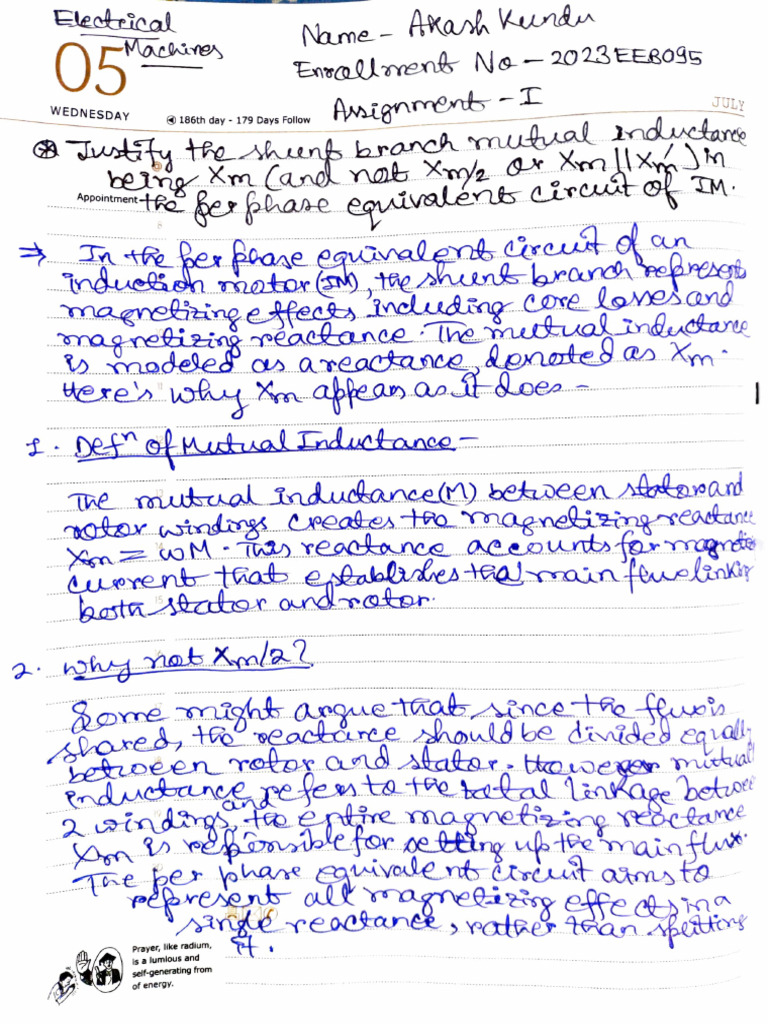 Electrical
Machines
05
WEDNESDAY
186th day - 179 Days Follow
JULY
Name - Akash Kundu
Enrollment No - 2023EEB095
Assignment - I
Justify the shunt branch mutual inductance
being Xm (and not Xm/2 or Xm || Xm') in
Appointment
the per phase equivalent circuit of IM.
⇒ In the per phase equivalent circuit of an
induction motor (IM), the shunt branch represents
magnetizing effects, including core losses and
magnetizing reactance. The mutual inductance
is modeled as a reactance, denoted as Xm.
Here's why Xm appears as it does -
1. Defn of Mutual Inductance -
The mutual inductance (M) between stator and
rotor windings creates the magnetizing reactance
Xm = ωM. This reactance accounts for magnetic
current that establishes the main flux linking
both stator and rotor.
2. Why not Xm/2?
Some might argue that since the flux is
shared, the reactance should be divided equally
between rotor and stator. However mutual
inductance refers to the total linkage between
2 windings, and the entire magnetizing reactance
Xm is responsible for setting up the main flux.
The per phase equivalent circuit aims to
represent all magnetizing effects in a
single reactance, rather than splitting
it.
Prayer, like radium,
is a lumious and
self-generating from
of energy.